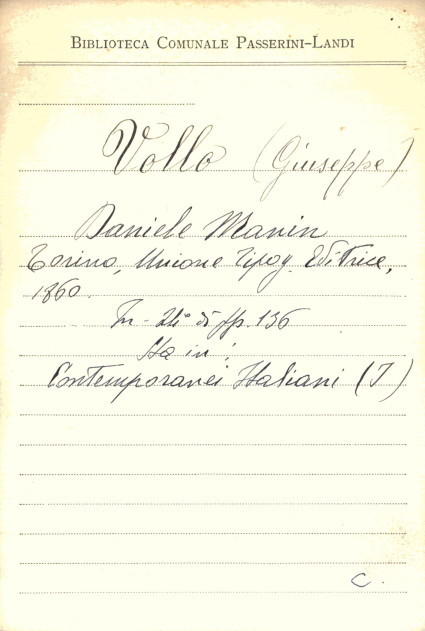 BIBLIOTECA COMUNALE PASSERINI-LANDI
Vollo (Giuseppe)
Daniele Manin
Torino, Unione Tipog. Editrice,
1860.
In-24° di pp. 136
Sta in:
Contemporanei Italiani (I)
C.